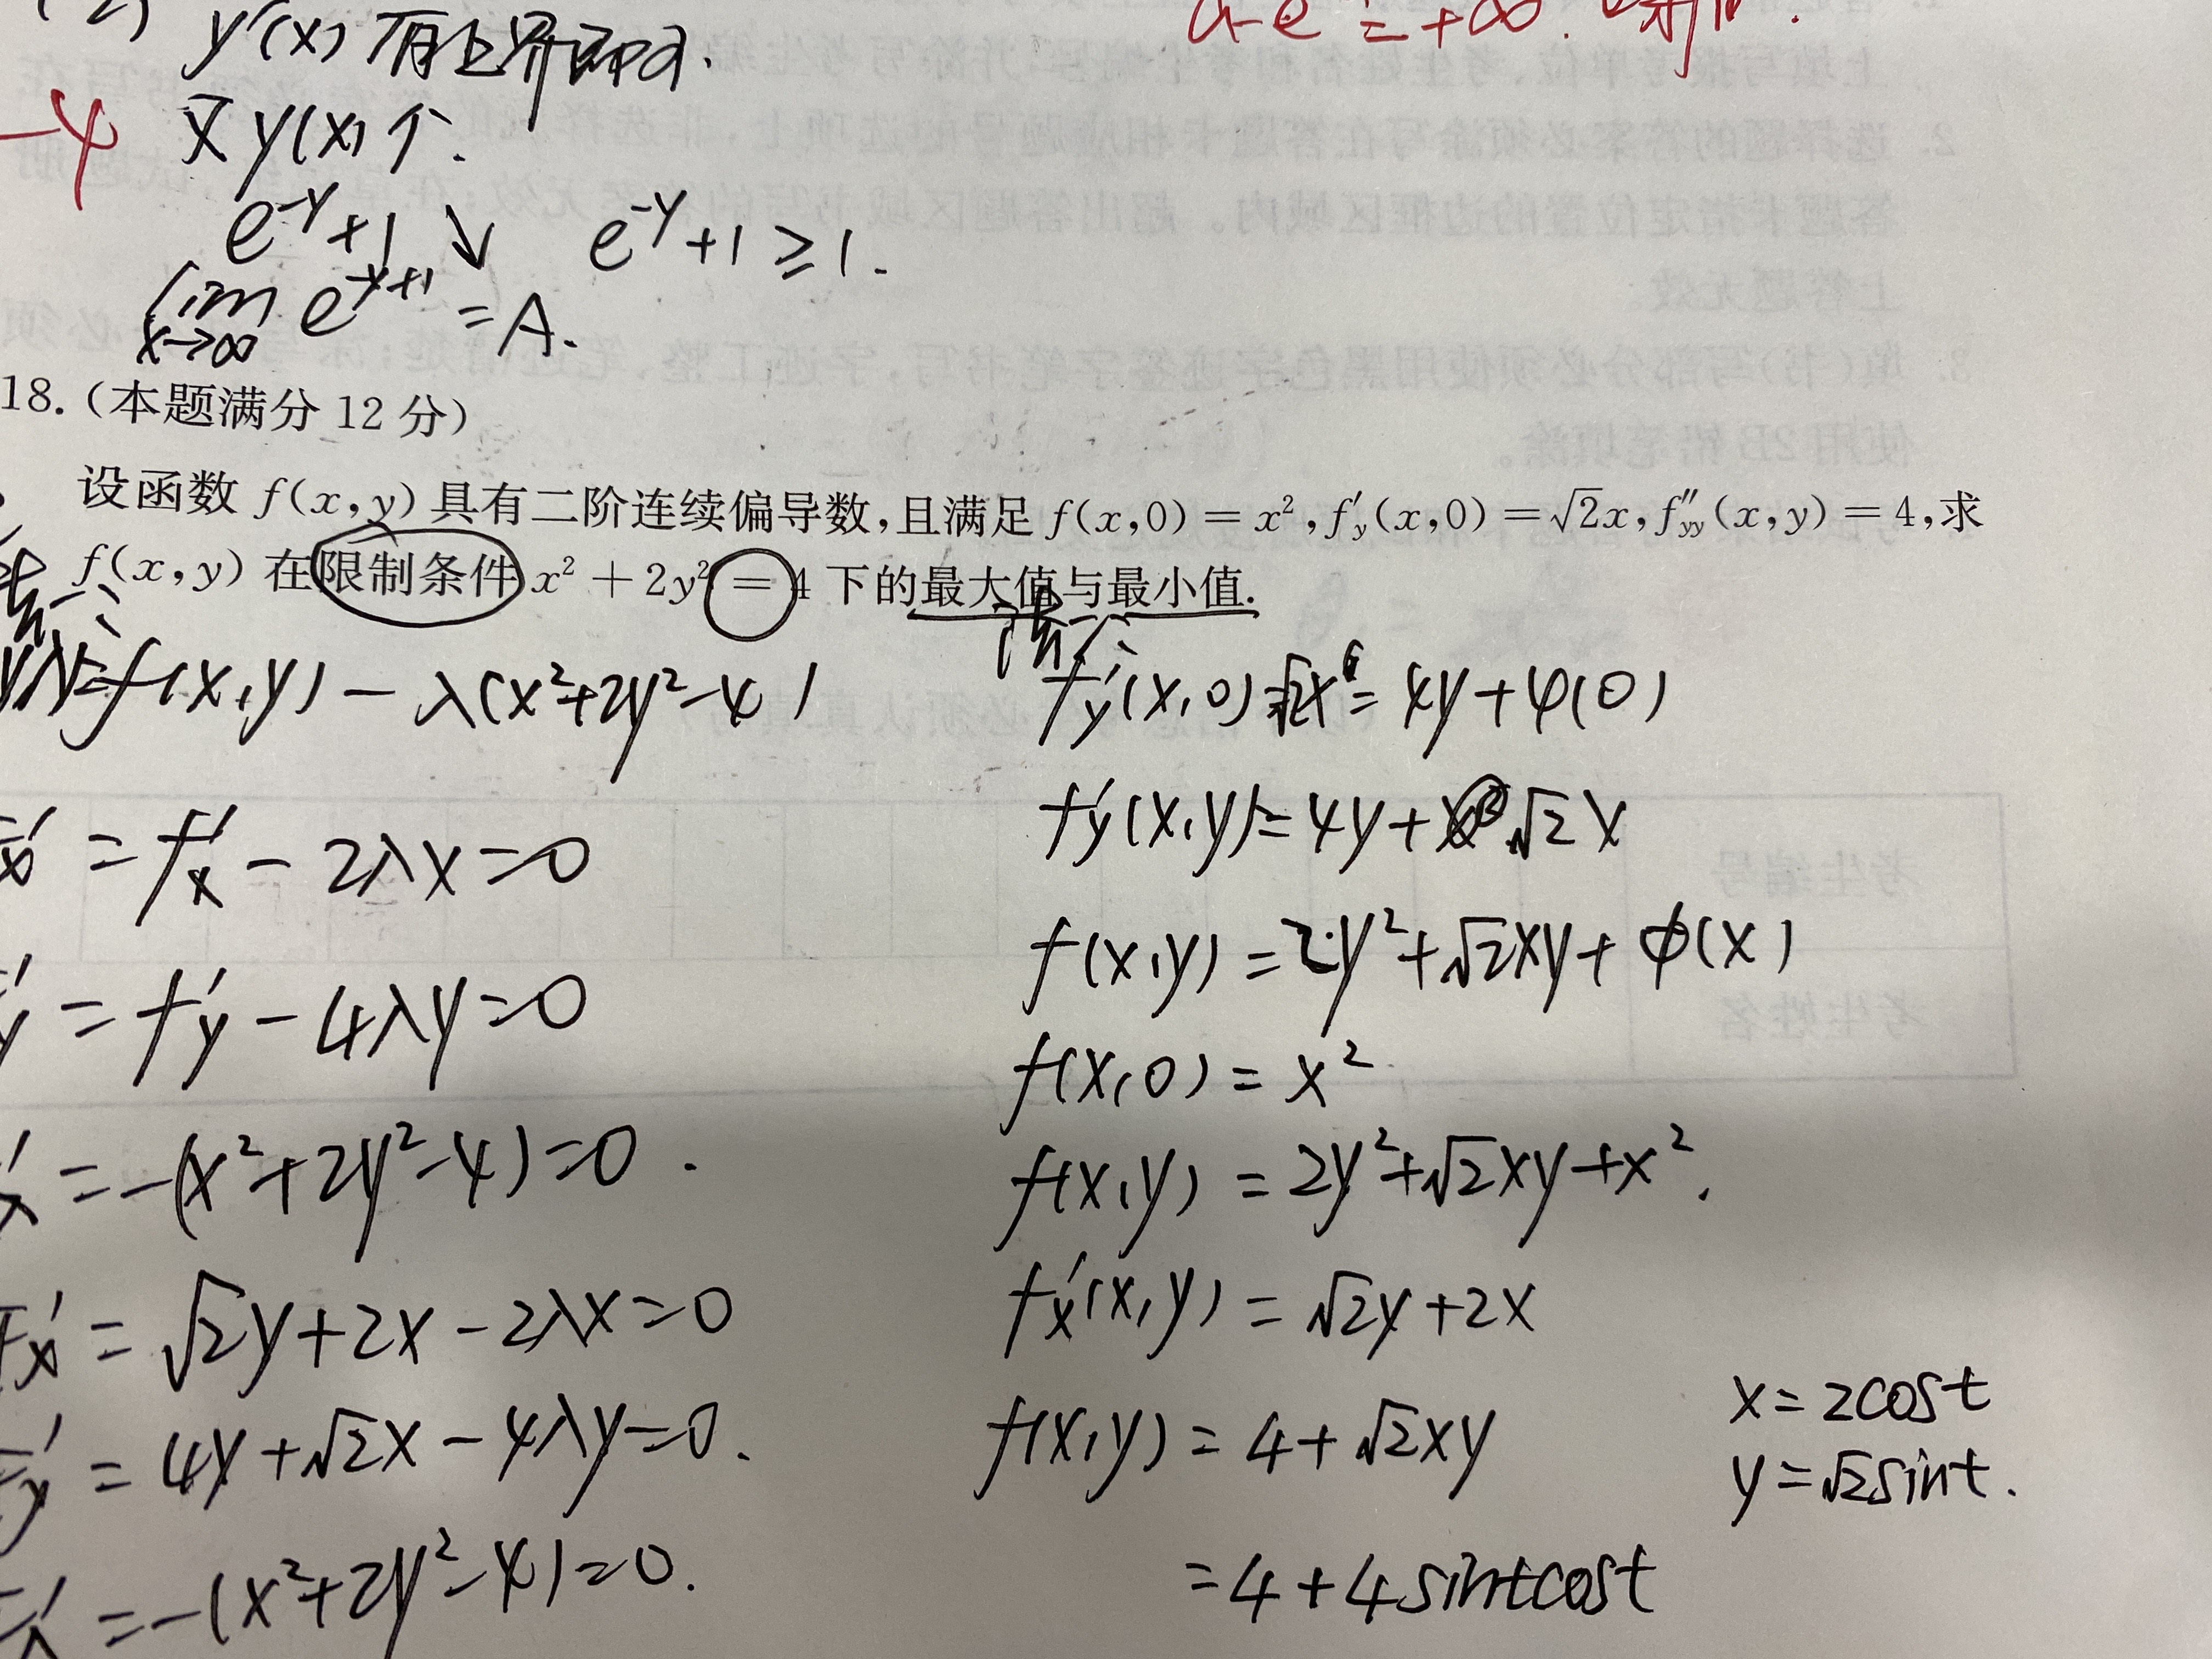 (2) y'(x)有上界即可.
-4 又y(x)↑.
e^{-y}+1 ↘ e^{-y}+1≥1.
lim_{x→∞} e^{-y+1}=A.
18.(本题满分 12 分)
设函数 f(x,y) 具有二阶连续偏导数,且满足 f(x,0)=x²,f′_y(x,0)=√2x,f″_{yy}(x,y)=4,求
f(x,y) 在限制条件 x²+2y²=4 下的最大值与最小值.
=f(x,y)-λ(x²+2y²-4)
x′=f′x-2λx=0
y′=f′y-4λy=0
λ′=-(x²+2y²-4)=0.
Fx′=√2y+2x-2λx=0
Fy′=4y+√2x-4λy=0.
Fλ′=-(x²+2y²-4)=0.
f′y(x,0)=√2x=4y+φ(0)
f′y(x,y)=4y+√2x
f(x,y)=2y²+√2xy+φ(x)
f(x,0)=x²
f(x,y)=2y²+√2xy+x².
f′x(x,y)=√2y+2x
f(x,y)=4+√2xy
=4+4sintcost
x=2cost
y=√2sint.